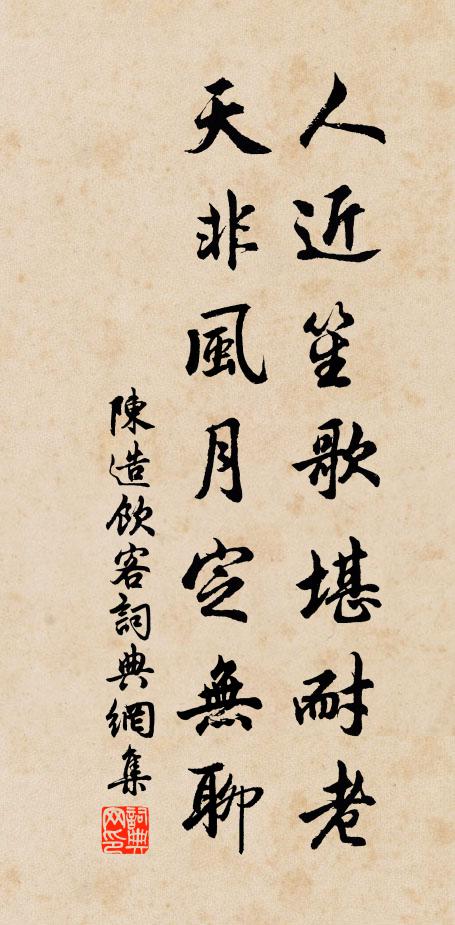 人近笙歌堪耐老
天非風月定無聊
陳造飲客詞典網集
詞典网印